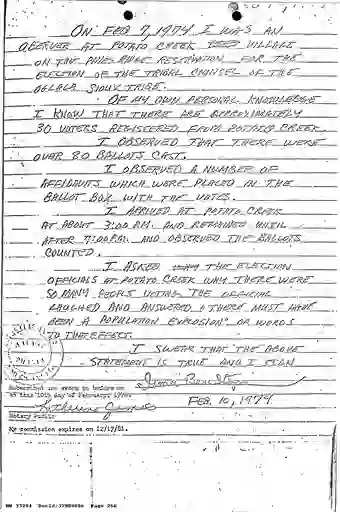 ON FEB 7, 1974 I WAS AN
OBERVER AT POTATO CREEK VILLAGE
ON THE PINE RIDGE RESERVATION FOR THE
ELECTION OF THE TRIBAL COUNSEL OF THE
OGLALA SIOUX TRIBE.
OF MY OWN PERSONAL KNOWLEDGE
I KNOW THAT THERE ARE APPROXIMATELY
30 VOTERS REGISTERED FROM POTATO CREEK.
I OBSERVED THAT THERE WERE
OVER 80 BALLOTS CAST.
I OBSERVED A NUMBER OF
AFFIDAVITS WHICH WERE PLACED IN THE
BALLOT BOX WITH THE VOTES.
I ARRIVED AT POTATO CREEK
AT ABOUT 3:00 P.M. AND REMAINED UNTIL
AFTER 7:00 P.M. AND OBSERVED THE BALLOTS
COUNTED.
I ASKED THE ELECTION
OFFICIALS AT POTATO CREEK WHY THERE WERE
SO MANY PEOPLE VOTING THE OFFICIAL
LAUGHED AND ANSWERED "THERE MUST HAVE
BEEN A POPULATION EXPLOSION" OR WORDS
TO THAT EFFECT.
I SWEAR THAT THE ABOVE
STATEMENT IS TRUE AND I SIGN
Subscribed and sworn to before me
on this 10th day of February, 1974.
FEB. 10, 1974
Katherine James
Notary Public
My commission expires on 12/17/81.
Page 256